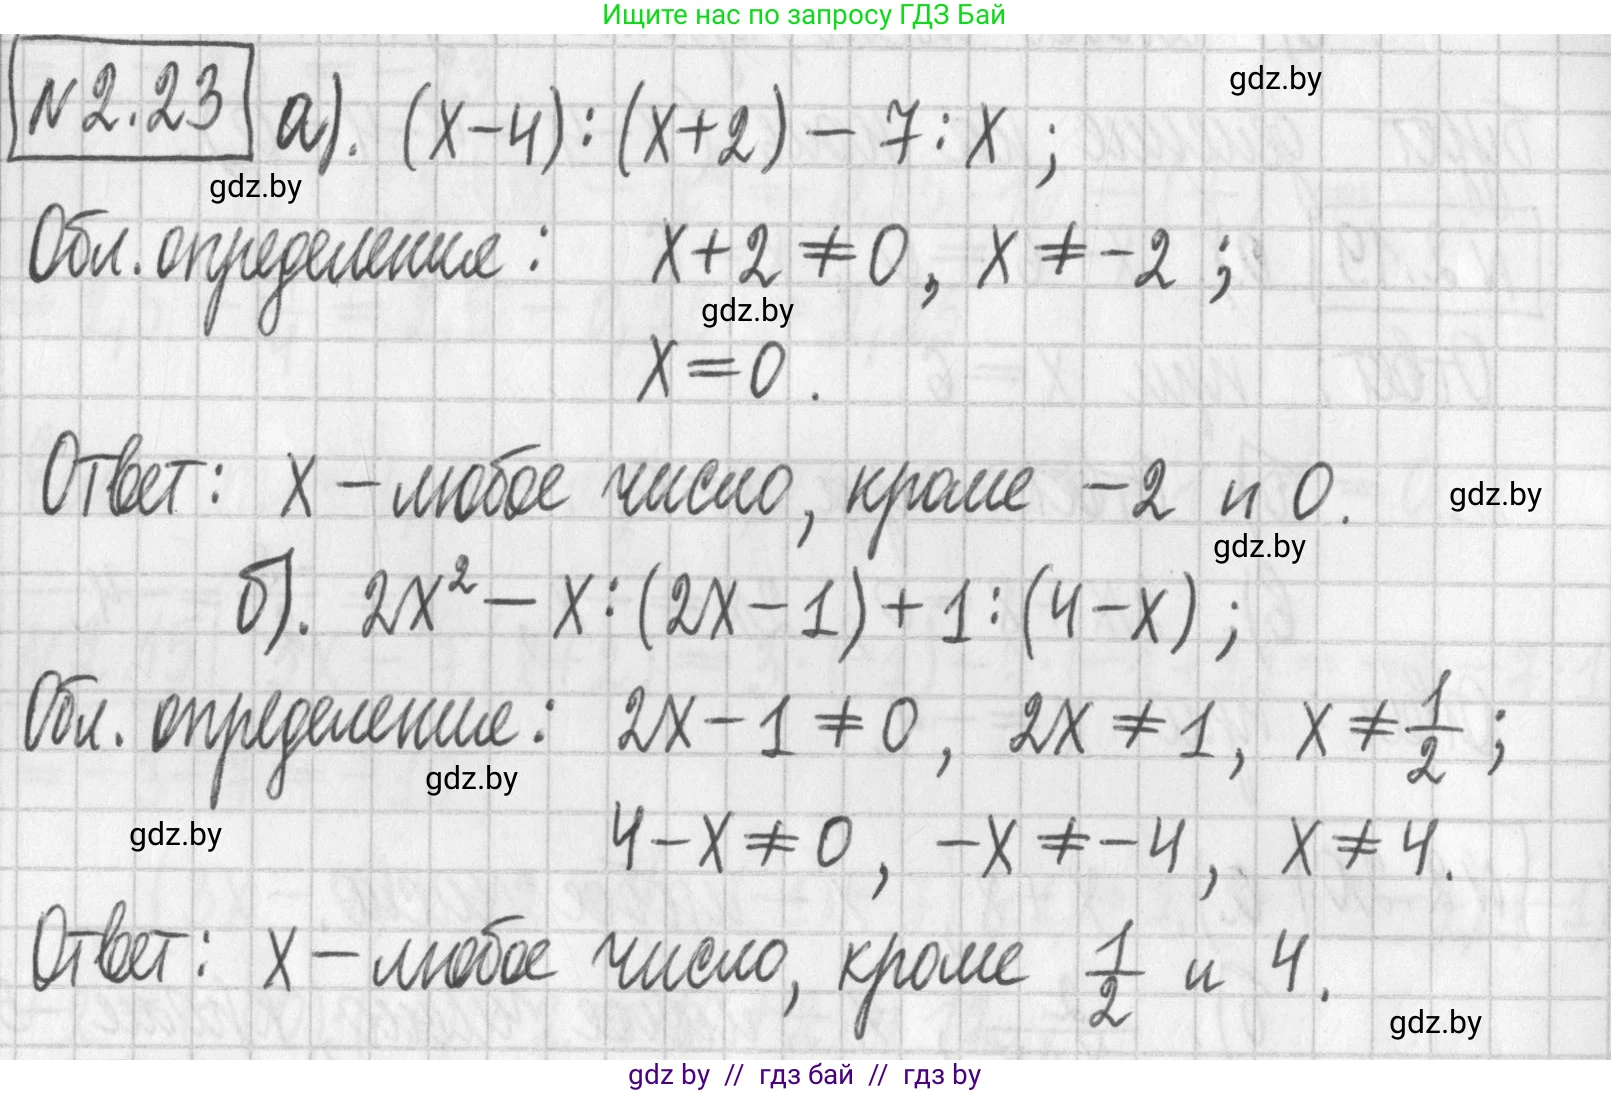 Ищите нас по запросу ГДЗ Бай
gdz.by
N2.23 а). (x-4):(x+2)-7:x;
gdz.by
Обл. определения: x+2≠0, x≠-2;
gdz.by
x=0.
Ответ: x-любое число, кроме -2 и 0.
gdz.by
gdz.by
б). 2x²-x:(2x-1)+1:(4-x);
Обл. определения: 2x-1≠0, 2x≠1, x≠1/2;
gdz.by
gdz.by
4-x≠0, -x≠-4, x≠4.
Ответ: x-любое число, кроме 1/2 и 4.
gdz.by
gdz by // гдз бай // гдз by